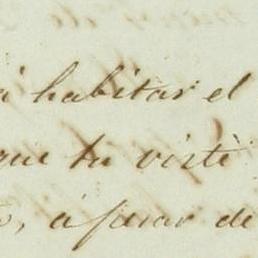 á habitar el
que tu viste
, á pesar de